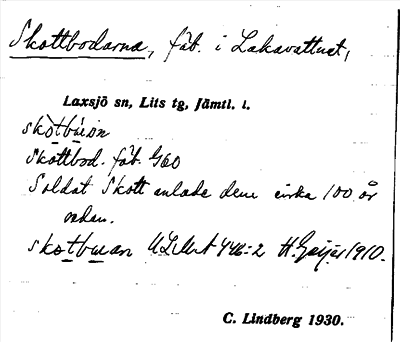 Skottbodarna, fäb. i Lakavattnet,
Laxsjö sn, Lits tg, Jämtl. l.
skòtbúon
Skottbod. fäb. G60
Soldat Skott anlade dem cirka 100 år
sedan.
skotbuan 446:2 H. Geijer 1910.
C. Lindberg 1930.